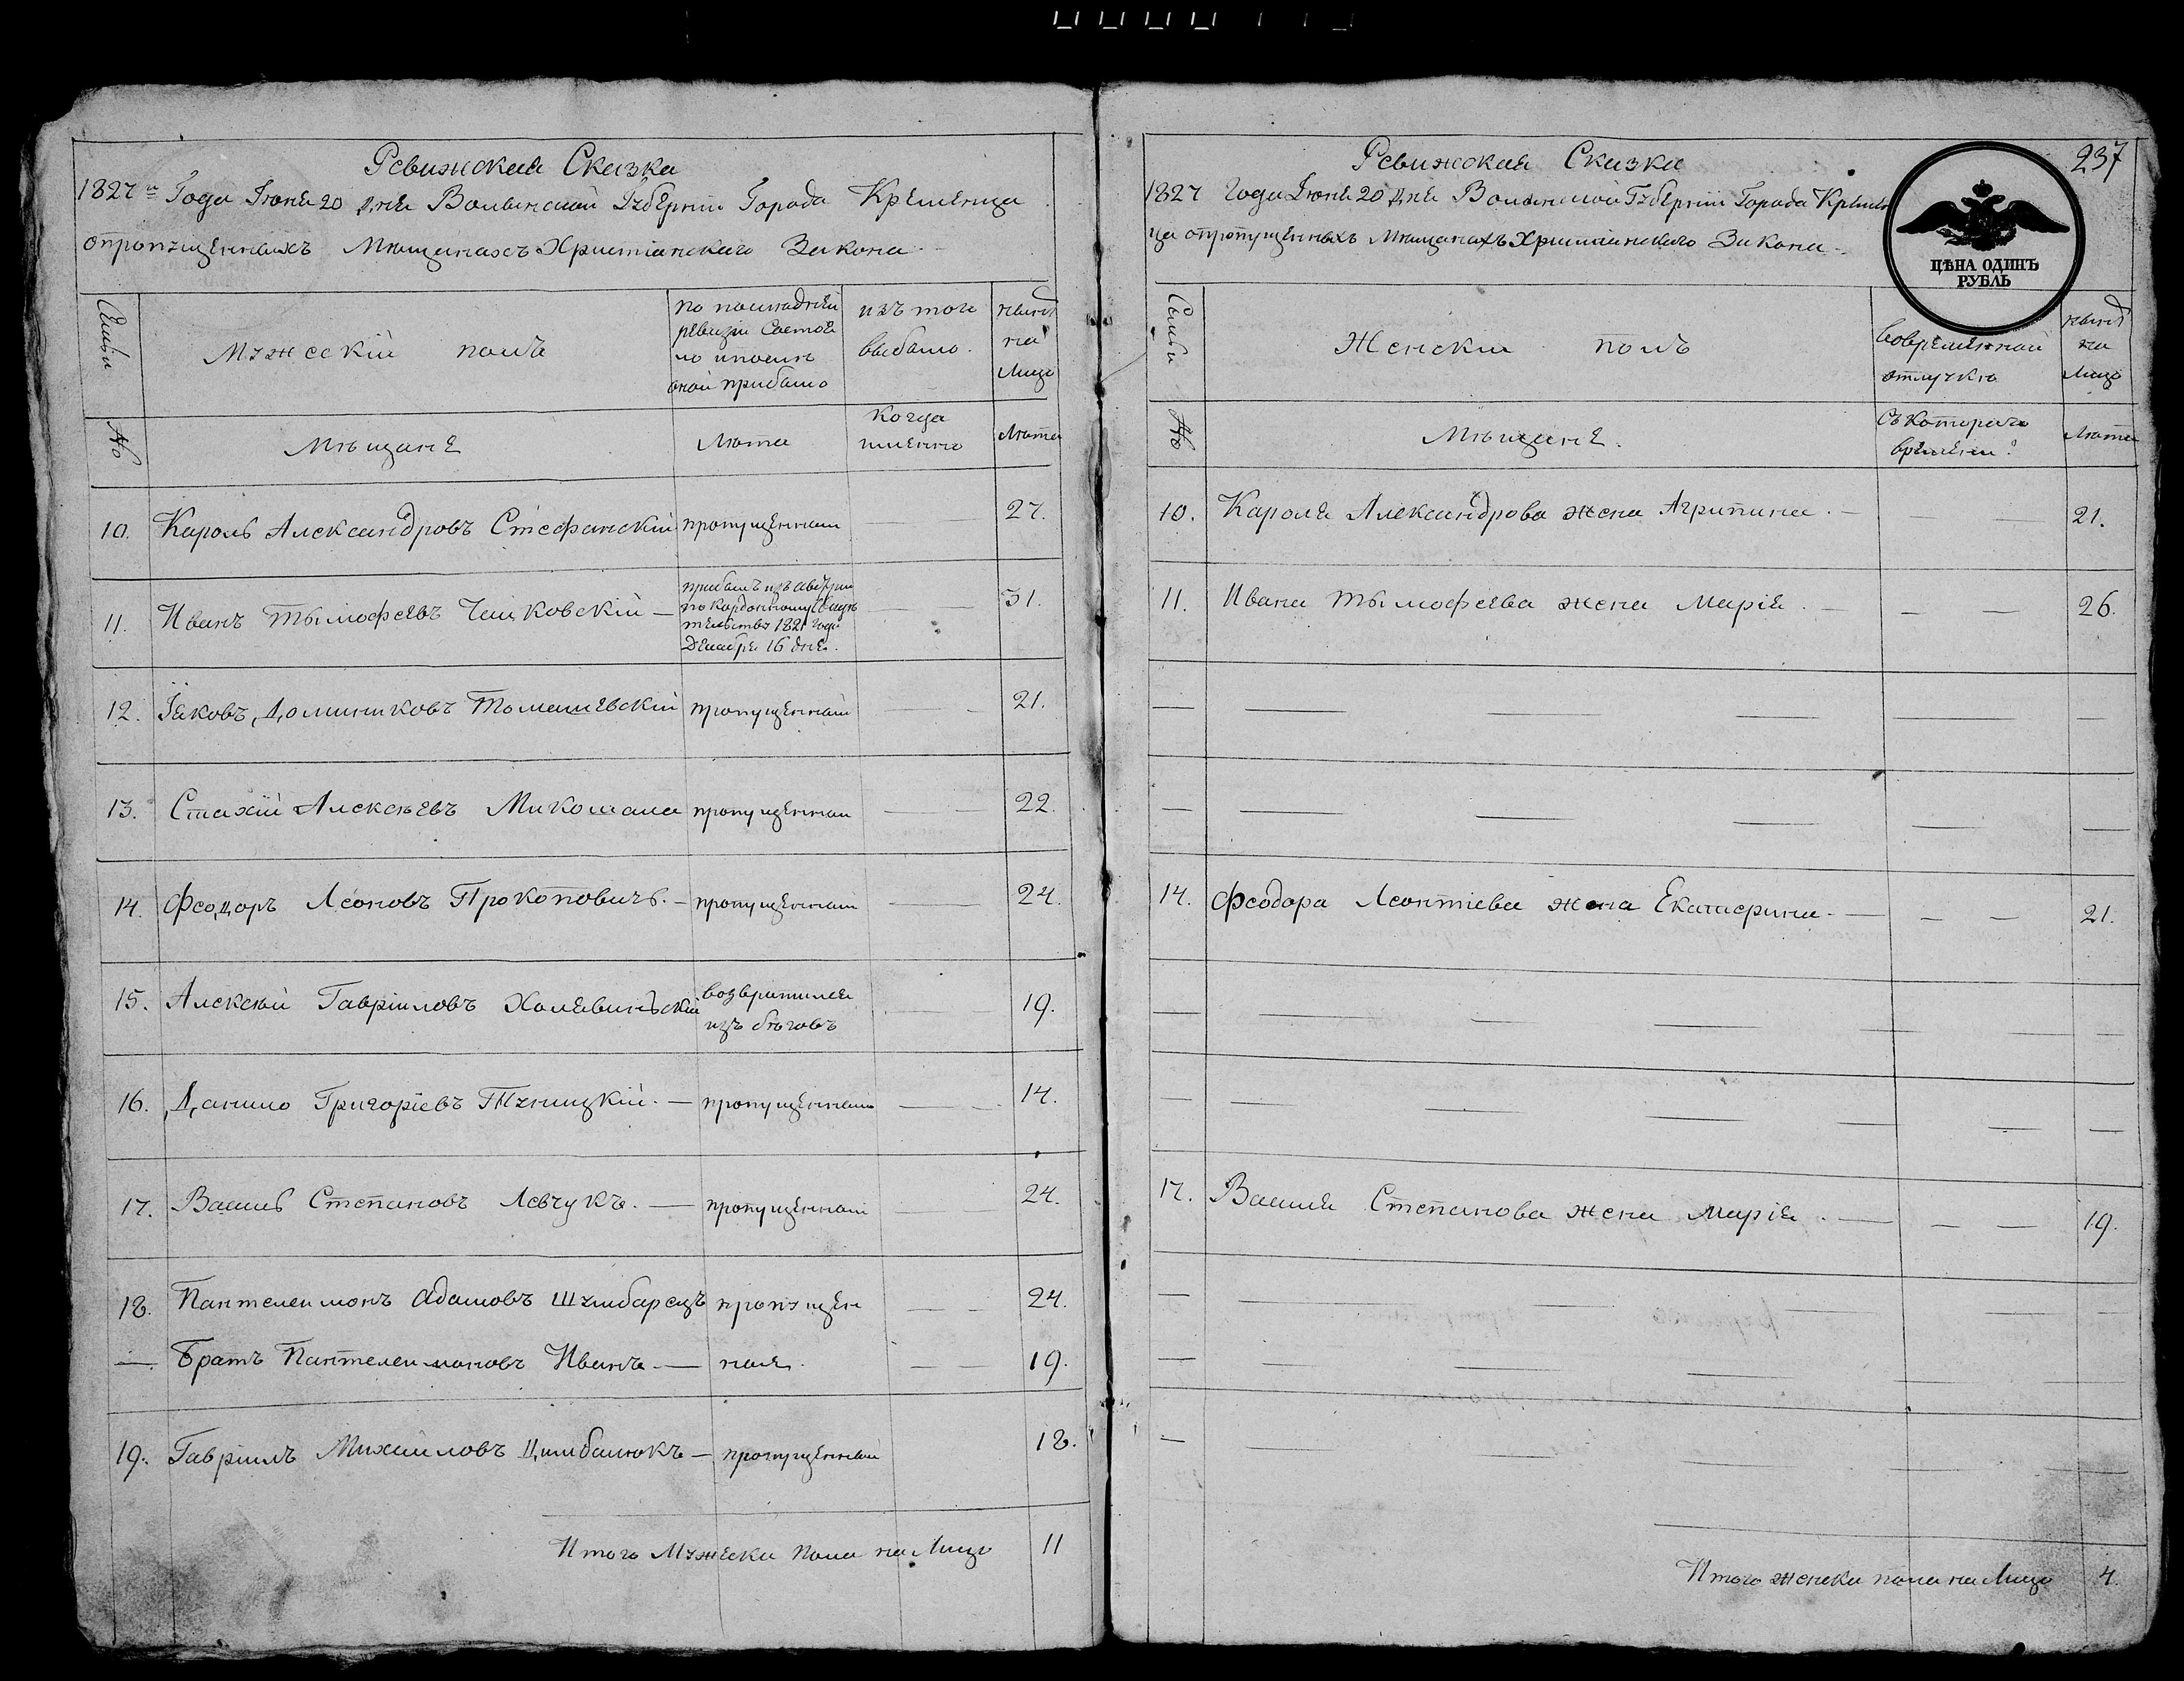 Ревижская Сказка
1827го Года Іюня 20 дня Волынской Губерніи Города Кременца
о пропущенныхъ Мѣщанахъ Христіанскаго Закона
Семьи
Мужескій полъ
по послѣдней
ревизіи состоя
ло и послѣ
оной прибыло
изъ того
выбыло.
нынѣ
на
Лицо
№
Мѣщане
Лѣта
когда
именно
Лѣта
10. Кароль Александровъ Стефанскій пропущенный 27.
11. Иванъ Тымофеевъ Чайковскій —
прибылъ изъ Австріи
по кордонному Свидѣ
тельству 1821 года
Декабря 16 дня.
31.
12. Іяковъ Доминиковъ Томашевскій пропущенный 21.
13. Стахій Алексѣевъ Микошала пропущенный — 22.
14. Феодоръ Леоновъ Прокоповичъ. — пропущенный — 24.
15. Алексѣй Гавріиловъ Холявинъскій
возвратился
изъ бѣговъ
— 19.
16. Данило Григоріевъ Туницкій. — пропущенный — 14.
17. Василь Степановъ Левчукъ. — пропущенный — 24.
18. Пантелеимонъ Адамовъ Шумбарецъ пропущен — 24.
— Братъ Пантелеимоновъ Иванъ — ныя. — 19.
19. Гавріилъ Михаиловъ Цимбалюкъ — пропущенный 18.
Итого Мужеска пола на Лицо 11
Ревижская Сказка
237
1827 Года Іюня 20 дня Волынской Губерніи Города Кремен
ца о пропущенныхъ Мѣщанахъ Христіанскаго Закона
ЦѢНА ОДИНЪ
РУБЛЬ
Семьи
Женскій полъ
Вовременной
отлучкѣ
нынѣ
на
Лицо
№
Мѣщане.
Съ котораго
времени?
Лѣта
10. Кароля Александрова жена Агрипина. — — 21.
11. Ивана Тымофеева жена Марія. — — — 26.
— — — — — —
— — — — — —
14. Феодора Леонтіева жена Екатерина. — — — 21.
— — — — — —
— — — — — —
17. Василя Степанова жена Марія. — — — 19.
— — — — — —
— — — — — —
— — — — —
Итого женска пола на Лицо 4.